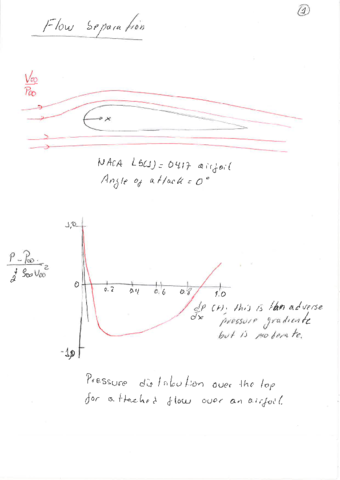 1
Flow Separation
V∞
P∞
x
NACA LS(1) = 0417 airfoil
Angle of attack = 0°
1,0
P - P∞
½ ρ∞ V∞²
0
0.2 0.4 0.6 0.8 1.0
dp/dx (+): this is then adverse
pressure gradiente
but is moderate.
-1,0
Pressure distribution over the top
for attached flow over an airfoil.